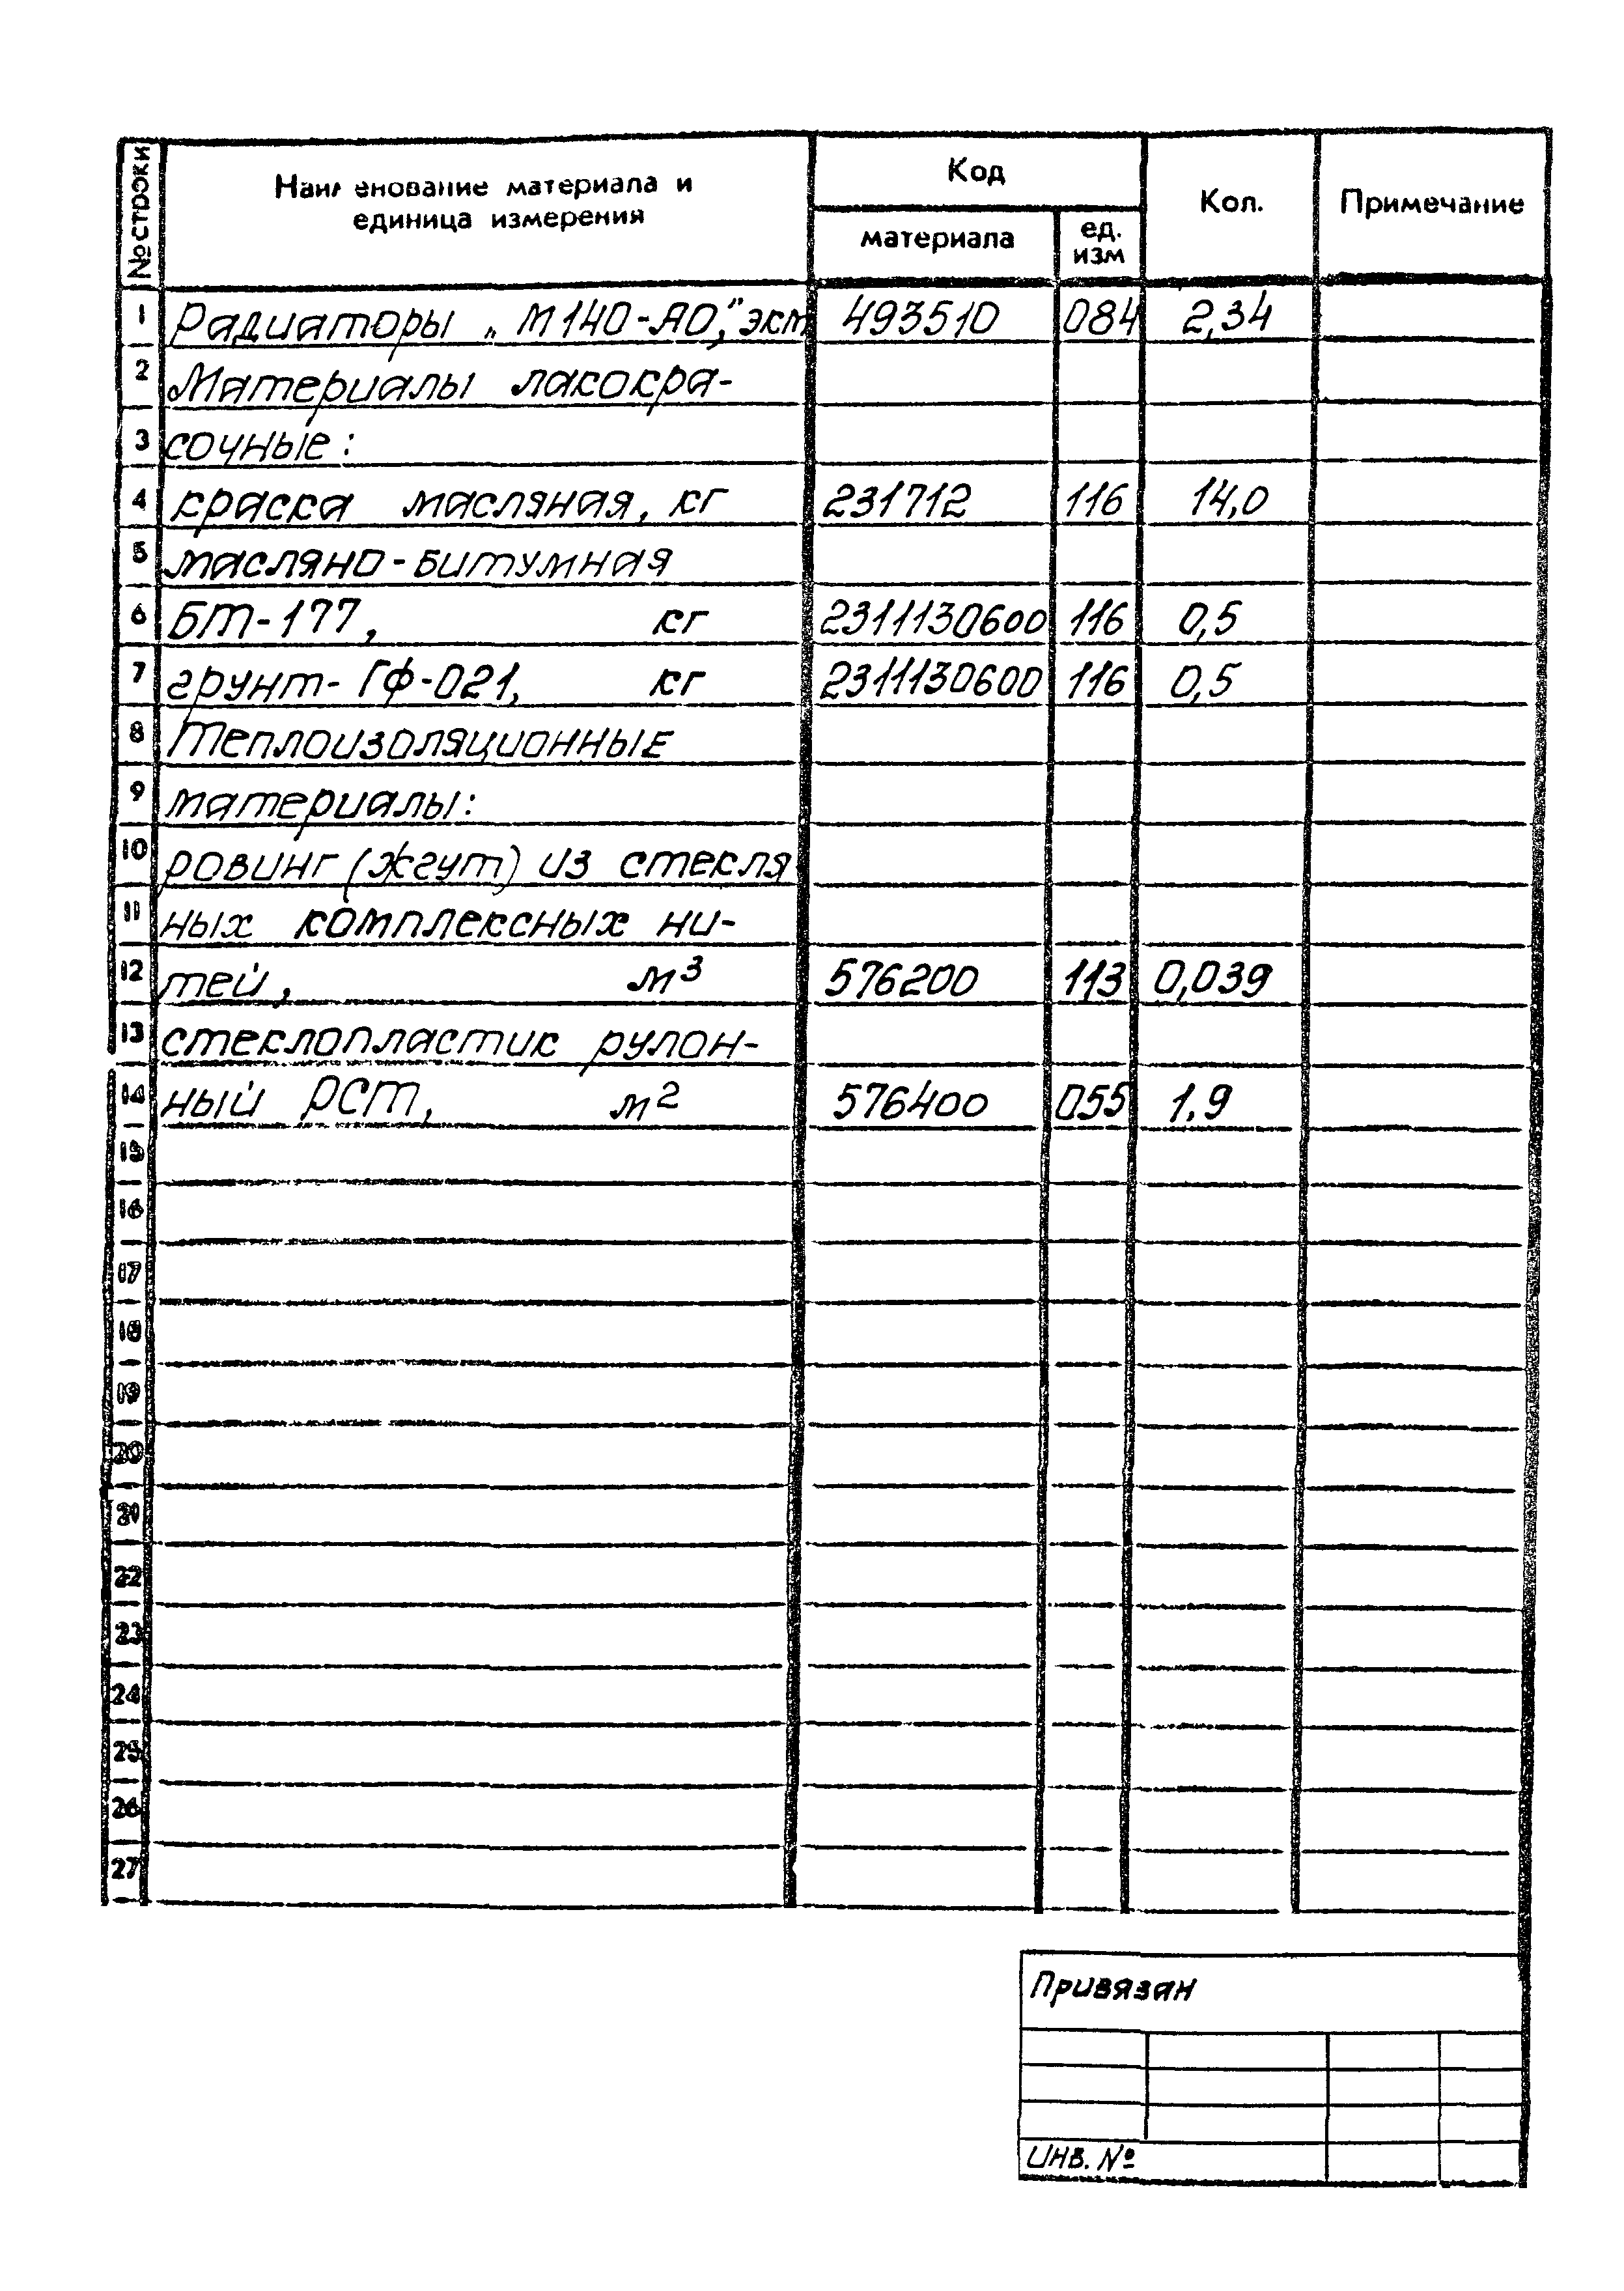 № строки
Наименование материала и
единица измерения
Код
материала
ед.
изм
Кол.
Примечание
1 Радиаторы „М140-АО," экм 493510 084 2,34
2 Материалы лакокра-
3 сочные:
4 краска масляная, кг 231712 116 14,0
5 масляно-битумная
6 БТ-177, кг 2311130600 116 0,5
7 грунт-ГФ-021, кг 2311130600 116 0,5
8 Теплоизоляционные
9 материалы:
10 ровинг (жгут) из стекля
11 ных комплексных ни-
12 тей, м³ 576200 113 0,039
13 стеклопластик рулон-
14 ный РСТ, м² 576400 055 1,9
15
16
17
18
19
20
21
22
23
24
25
26
27
Привязан
Инв. №